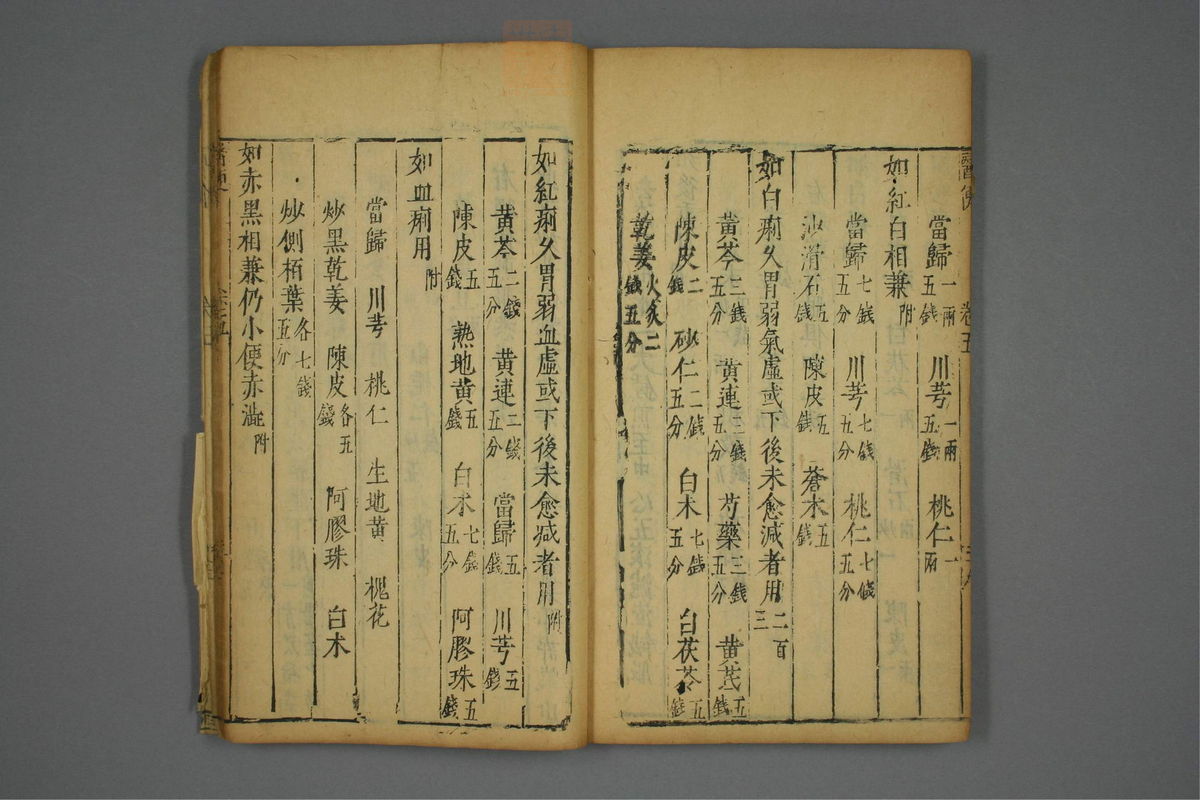 當歸一兩五錢 川芎一兩五錢 桃仁一兩
如紅白相兼附
當歸七錢五分 川芎七錢五分 桃仁七錢五分
滑石五錢 陳皮五錢 蒼术五錢
如白痢久胃弱氣虛或下後未愈减者用二百三
黃芩二錢五分 黃連二錢五分 芍藥三錢五分 黃茋五錢
陳皮二錢 砂仁二錢五分 白术七錢五分 白茯苓五錢
乾姜火炙二錢五分
如紅痢久胃弱血虛或下後未愈减者用附
黃芩二錢五分 黃連二錢五分 當歸五錢 川芎五錢
陳皮五錢 熟地黃五錢 白术七錢五分 阿膠珠五錢
如血痢用附
當歸 川芎 桃仁 生地黃 槐花
炒黑乾姜 陳皮各五錢 阿膠珠 白术
炒側栢葉各七錢五分
如赤黑相兼仍小便赤澁附